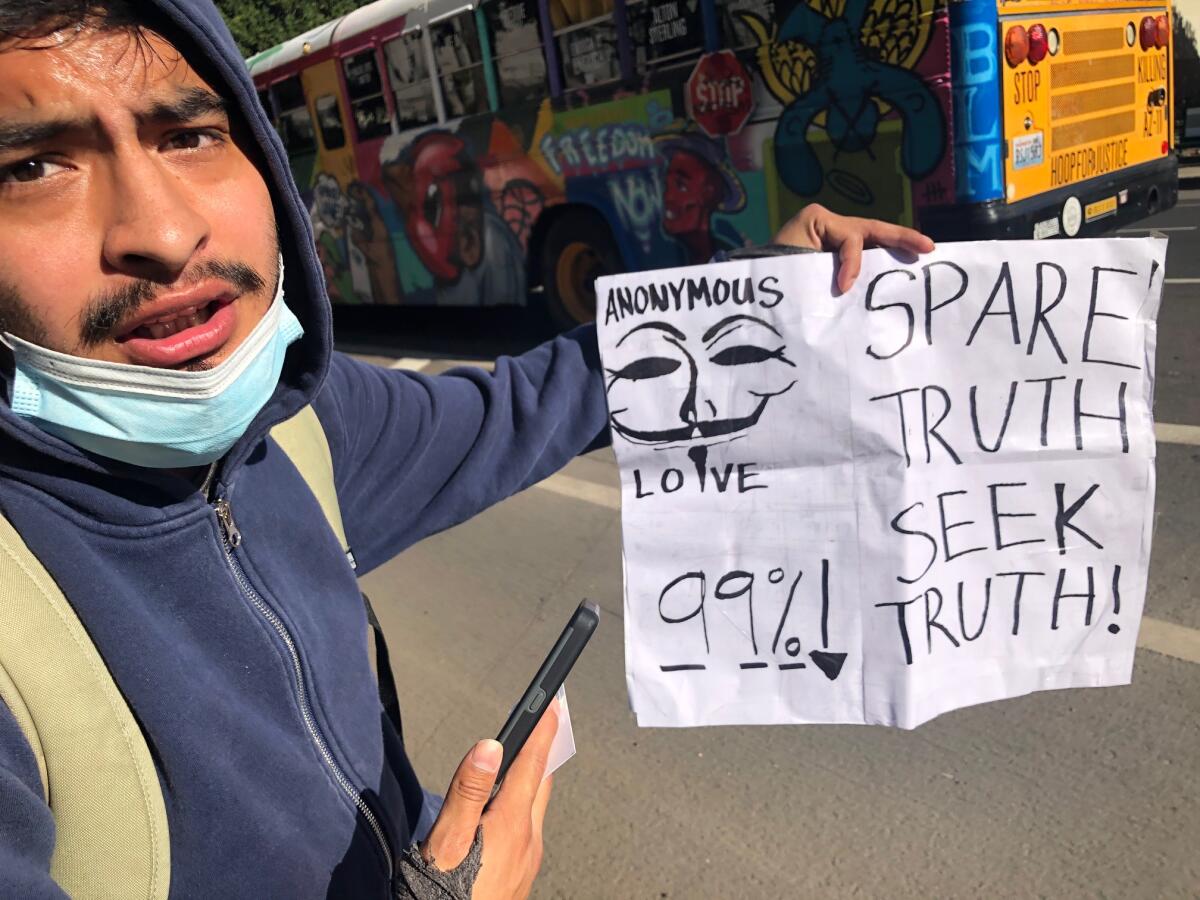 ALTON
STERLING
STOP
FREEDOM
NOW
BLM
STOP
KILLING
HOOPFORJUSTICE
ANONYMOUS
LOVE
99%!
SPARE
TRUTH
SEEK
TRUTH!